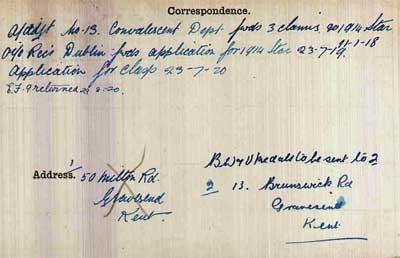 Correspondence.
A/adjt No. 13. Convalescent Dept. fwds 3 claims, 1914 Star
11-1-18
O i/c Recs Dublin fwds application for 1914 Star 23-7-19.
Application for clasp 23-7-20
E.F. 9 returned 20.
Address.
1 50 Milton Rd.
Gravesend
Kent.
B W & V medals to be sent to 2
2 13. Brunswick Rd
Gravesend
Kent.